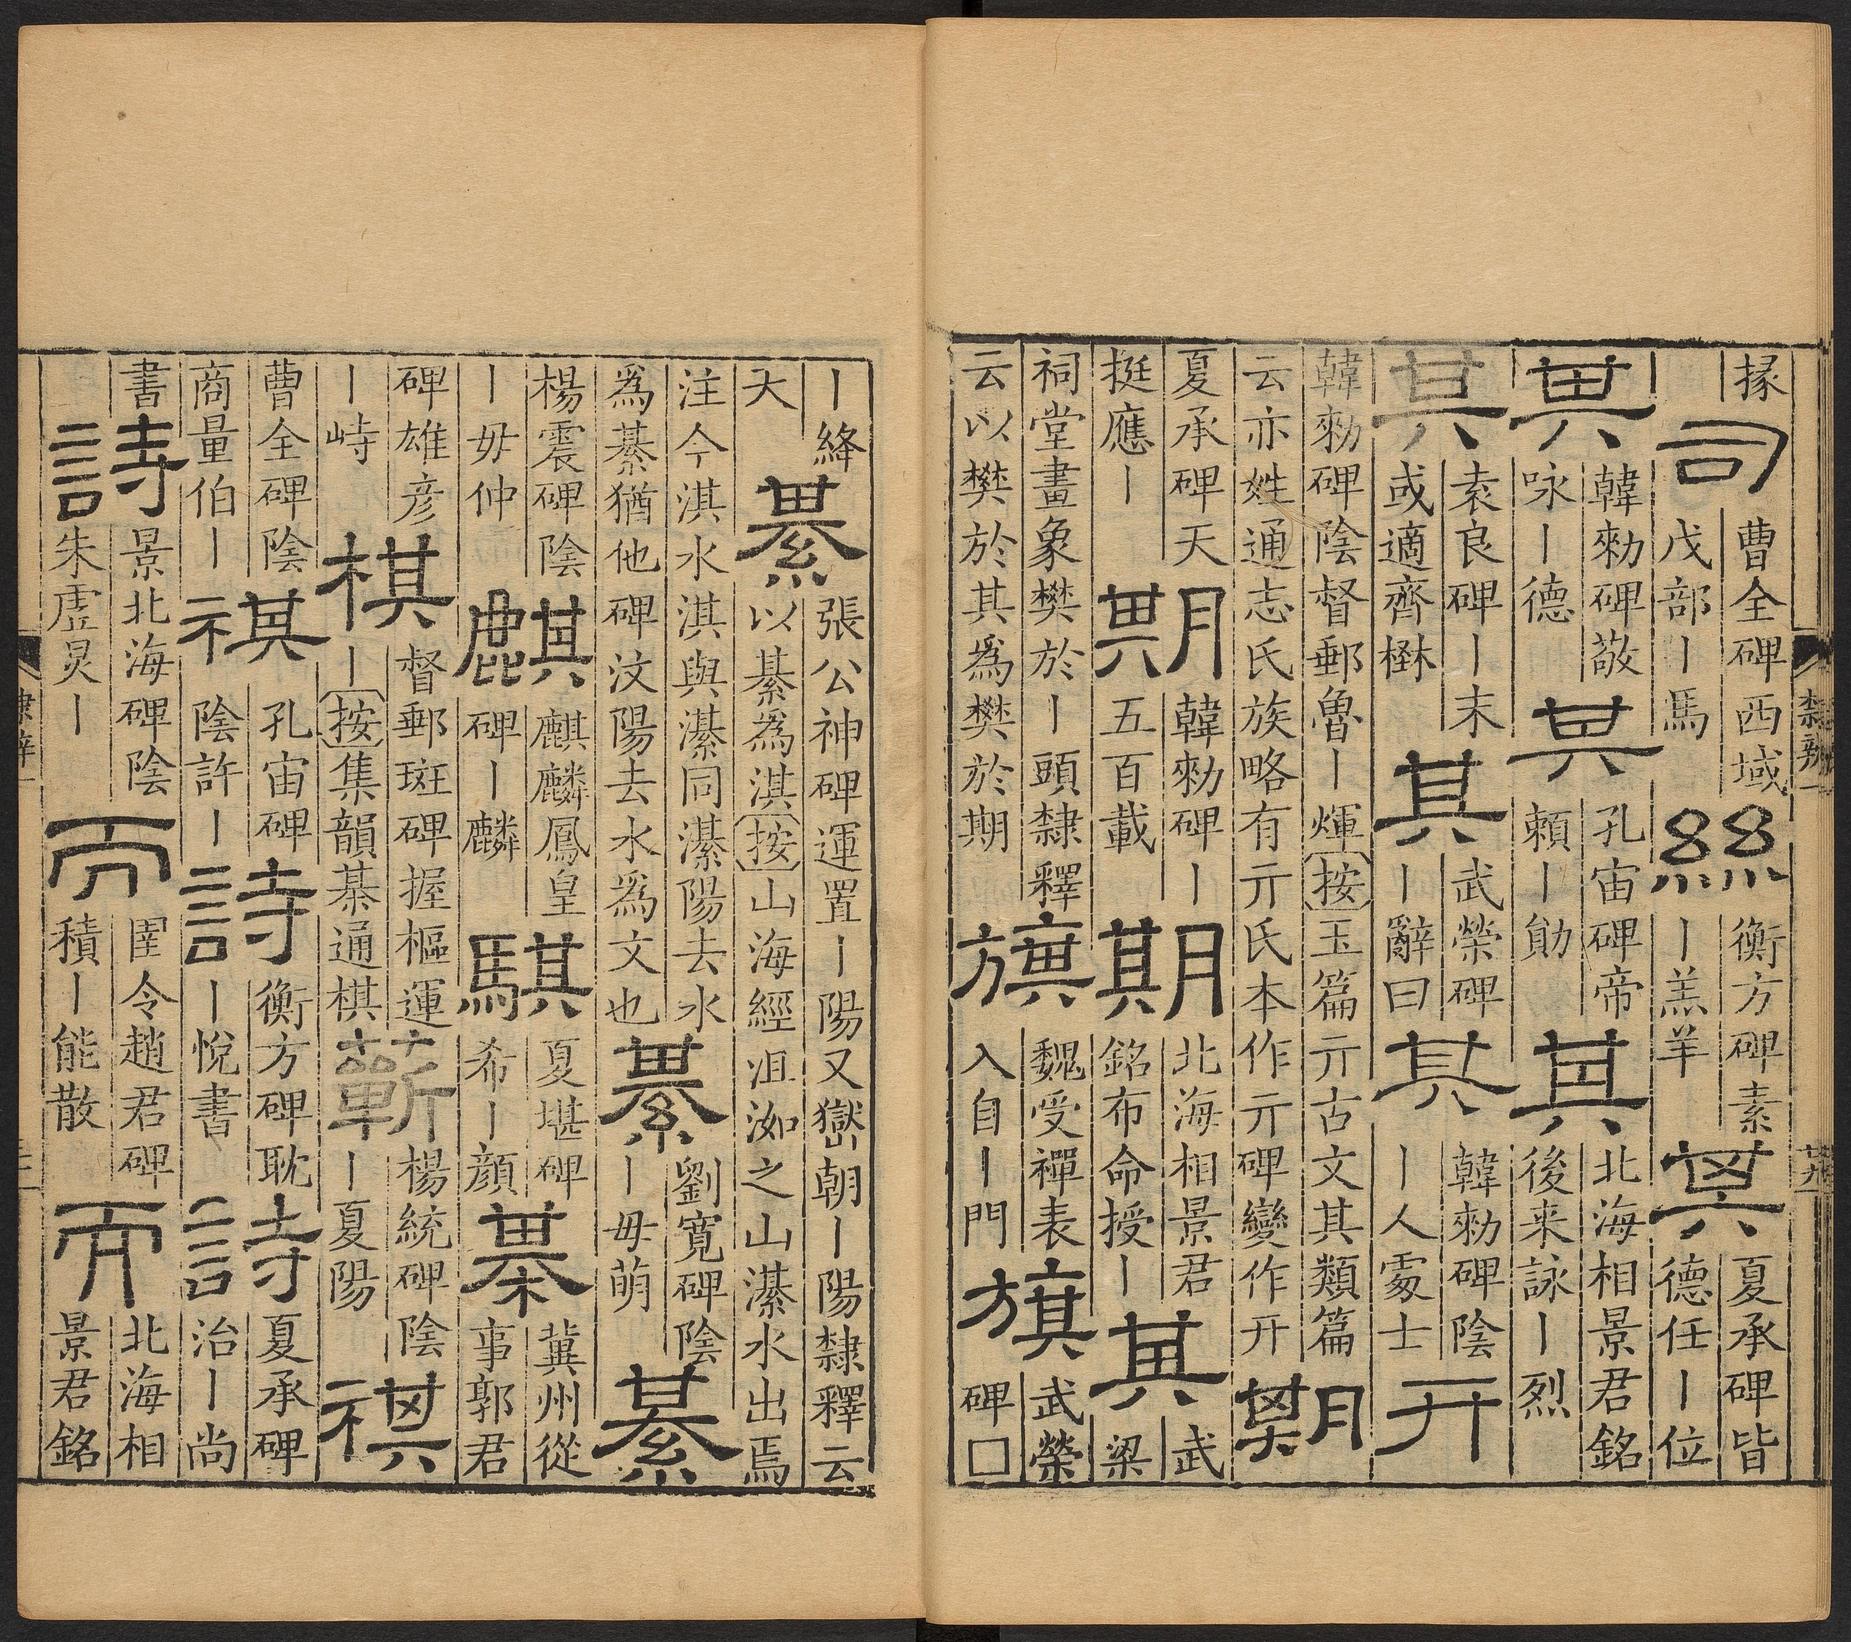 掾
司
曹全碑西域
戊部丨馬
絲
衡方碑素
丨羔羊
其
夏承碑皆
德任丨位
其
韓勑碑敬
咏丨德
其
孔宙碑帝
賴丨勛
其
北海相景君銘
後来詠丨烈
其
袁良碑丨末
或適齊楙
其
武榮碑
丨辭曰
其
韓勑碑陰
丨人處士
亓
韓勑碑陰督郵魯丨煇按玉篇亓古文其類篇
云亦姓通志氏族略有亓氏本作亓亓碑變作开
期
夏承碑天
挺應丨
期
韓勑碑丨
五百載
期
北海相景君
銘布命授丨
其
武
梁
祠堂畫象樊於丨頭隸釋
云以樊於其為樊於期
旗
魏受禪表
入自丨門
旗
武榮
碑□
丨絳
大
綦
張公神碑運置丨陽又嶽朝丨陽隸釋云
以綦為淇按山海經沮洳之山濝水出焉
注今淇水淇與濝同濝陽去水
為綦猶他碑汶陽去水為文也
綦
劉寬碑陰
丨毋萌
綦
楊震碑陰
丨毋仲
麒
麒麟鳳皇
碑丨麟
騏
夏堪碑
希丨顏
棊
冀州從
事郭君
碑雄彥
丨峙
棋
督郵斑碑握樞運
丨按集韻棊通棋
蘄
楊統碑陰
丨夏陽
祺
曹全碑陰
商量伯丨
祺
孔宙碑
陰許丨
詩
衡方碑耽
丨悅書
詩
夏承碑
治丨尚
書
詩
景北海碑陰
朱虛炅丨
而
圉令趙君碑
積丨能散
而
北海相
景君銘
隸辨一